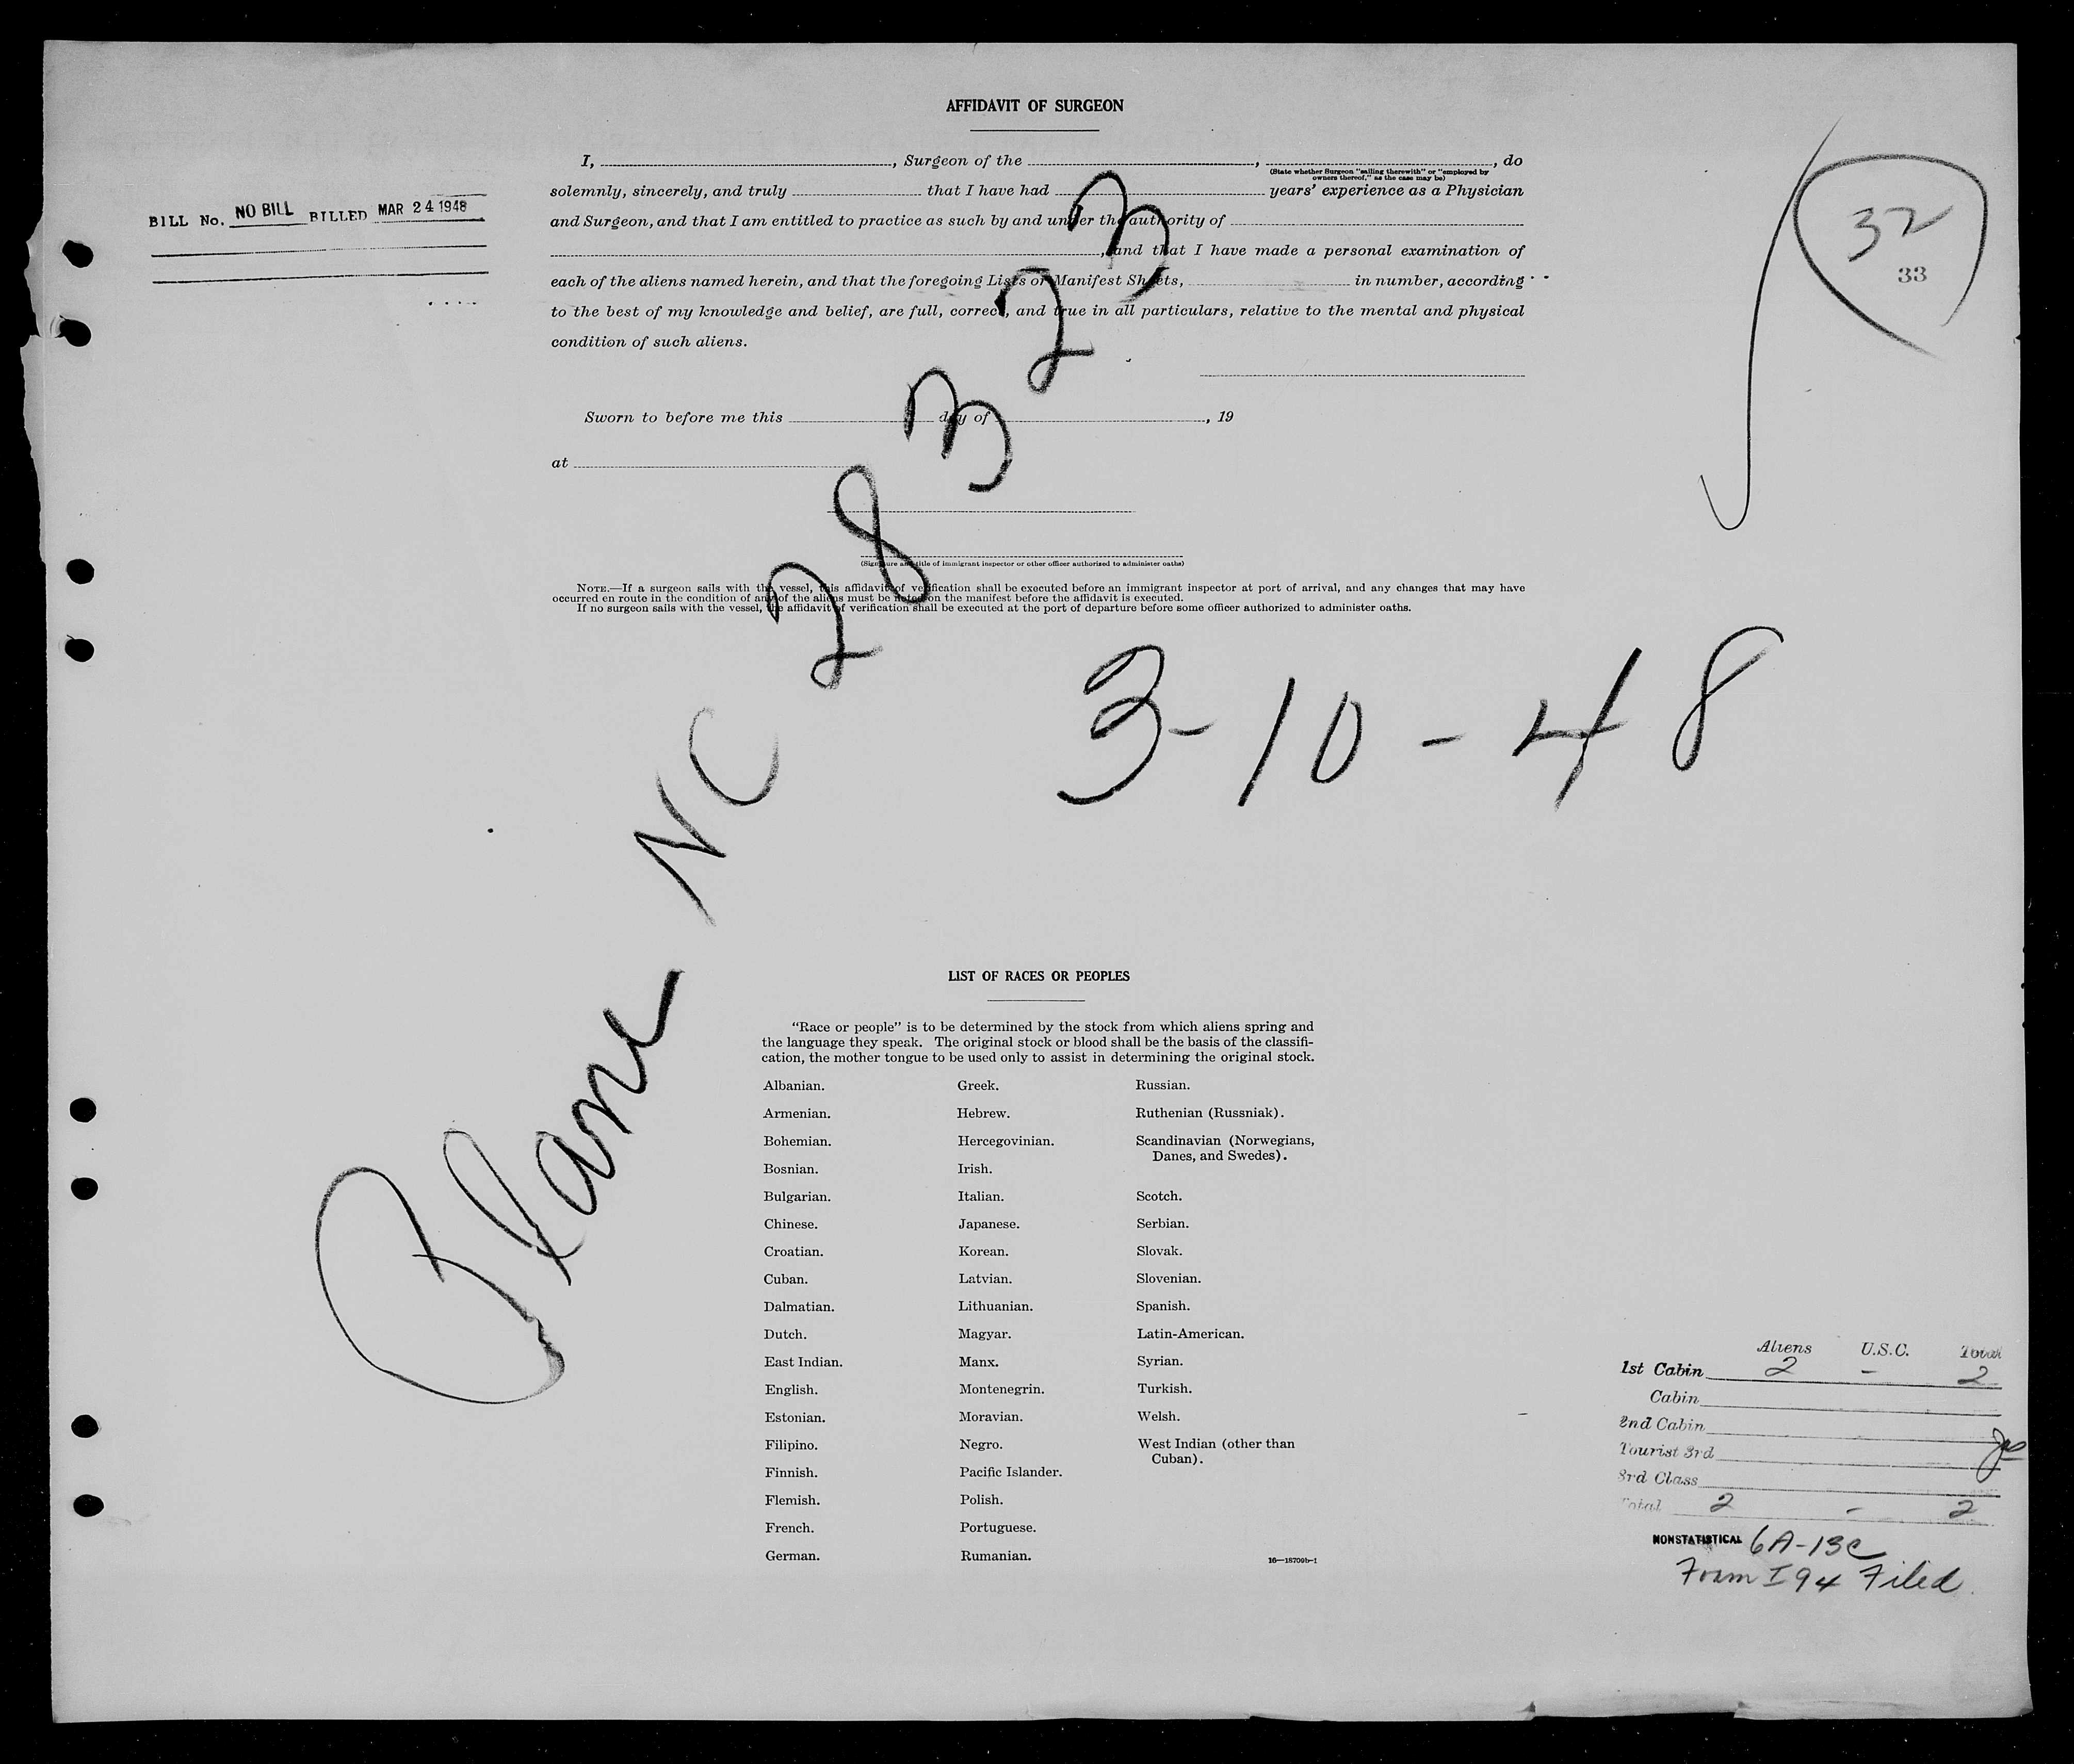 AFFIDAVIT OF SURGEON
I, , Surgeon of the , , do
(State whether Surgeon "sailing therewith" or "employed by
owners thereof," as the case may be)
solemnly, sincerely, and truly that I have had years' experience as a Physician
and Surgeon, and that I am entitled to practice as such by and under the authority of
, and that I have made a personal examination of
each of the aliens named herein, and that the foregoing Lists or Manifest Sheets, in number, according
to the best of my knowledge and belief, are full, correct, and true in all particulars, relative to the mental and physical
condition of such aliens.
Sworn to before me this day of , 19
at
(Signature and title of immigrant inspector or other officer authorized to administer oaths)
NOTE.—If a surgeon sails with the vessel, this affidavit of verification shall be executed before an immigrant inspector at port of arrival, and any changes that may have
occurred en route in the condition of any of the aliens must be noted on the manifest before the affidavit is executed.
If no surgeon sails with the vessel, the affidavit of verification shall be executed at the port of departure before some officer authorized to administer oaths.
BILL No. NO BILL BILLED MAR 24 1948
32
33
Plane NC 28323
3-10-48
LIST OF RACES OR PEOPLES
"Race or people" is to be determined by the stock from which aliens spring and
the language they speak. The original stock or blood shall be the basis of the classifi-
cation, the mother tongue to be used only to assist in determining the original stock.
Albanian.
Armenian.
Bohemian.
Bosnian.
Bulgarian.
Chinese.
Croatian.
Cuban.
Dalmatian.
Dutch.
East Indian.
English.
Estonian.
Filipino.
Finnish.
Flemish.
French.
German.
Greek.
Hebrew.
Hercegovinian.
Irish.
Italian.
Japanese.
Korean.
Latvian.
Lithuanian.
Magyar.
Manx.
Montenegrin.
Moravian.
Negro.
Pacific Islander.
Polish.
Portuguese.
Rumanian.
Russian.
Ruthenian (Russniak).
Scandinavian (Norwegians,
Danes, and Swedes).
Scotch.
Serbian.
Slovak.
Slovenian.
Spanish.
Latin-American.
Syrian.
Turkish.
Welsh.
West Indian (other than
Cuban).
16—18709b-1
Aliens U.S.C. Total
1st Cabin 2 - 2
Cabin
2nd Cabin
Tourist 3rd
3rd Class
Total 2 - 2
NONSTATISTICAL 6A-13C
Form I 94 Filed.